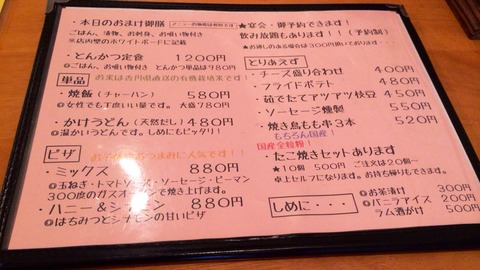 ・本日のおまけ御膳
ごはん、漬物、お刺身、お吸い物付き
※店内壁のホワイトボードに記載
・とんかつ定食 1200円
ごはん、お吸い物付き とんかつ単品は980円
単品 お米は香川県直送の有機栽培米です！
・焼飯（チャーハン） 580円
◎女性でも丁度いい量です。大盛780円
・かけうどん（天然だし）480円
◎温かいうどんです。しめにもピッタリ！
ピザ お子様やおつまみに人気です！！
・ミックス 880円
◎玉ねぎ・トマトソース・ソーセージ・ピーマン
300度のガスオーブンで焼き上げます。
・ハニー＆シナモン 880円
◎はちみつとシナモンの甘いピザ
★宴会・御予約できます！
飲み放題もあります！！（予約制）
★お通しのある場合は300円頂いております。
とりあえず
・チーズ盛り合わせ 400円
・フライドポテト 480円
・茹でたてアツアツ枝豆 450円
・ソーセージ燻製 550円
・焼き鳥もも串3本 520円
もちろん国産！
国産全粒粉！
・たこ焼きセットあります
★10個 500円 ご注文は20個〜
卓上セルフになります。お持ち帰りもできます。
しめに・・・
◎お茶漬け 300円
◎バニラアイス 200円
ラム酒がけ 500円